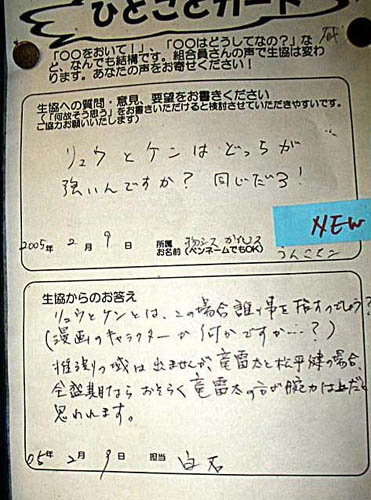 ひとことカード
「〇〇をおいて！」、「〇〇はどうしてなの？」な
ど、なんでも結構です。組合員さんの声で生協は変わ
ります。あなたの声をお寄せください！
生協への質問・意見、要望をお書きください
（「何故そう思う」をお書きいただけると検討させていただきやすいです。
ご協力お願いいたします）
リュウとケンはどっちが
強いんですか？ 同じだろ！
NEW
2005年 2月 9日 所属 物シス ガイルス
お名前（ペンネームでもOK）
生協からのお答え
リュウとケンとは、この場合誰の事を指すのでしょう？
（漫画のキャラクターか何かですか…？）
推測の域は出ませんが、竜雷太と松平健の場合、
全盛期なら おそらく竜雷太の方が腕力は上だと
思われます。
05年 2月 9日 担当 白石